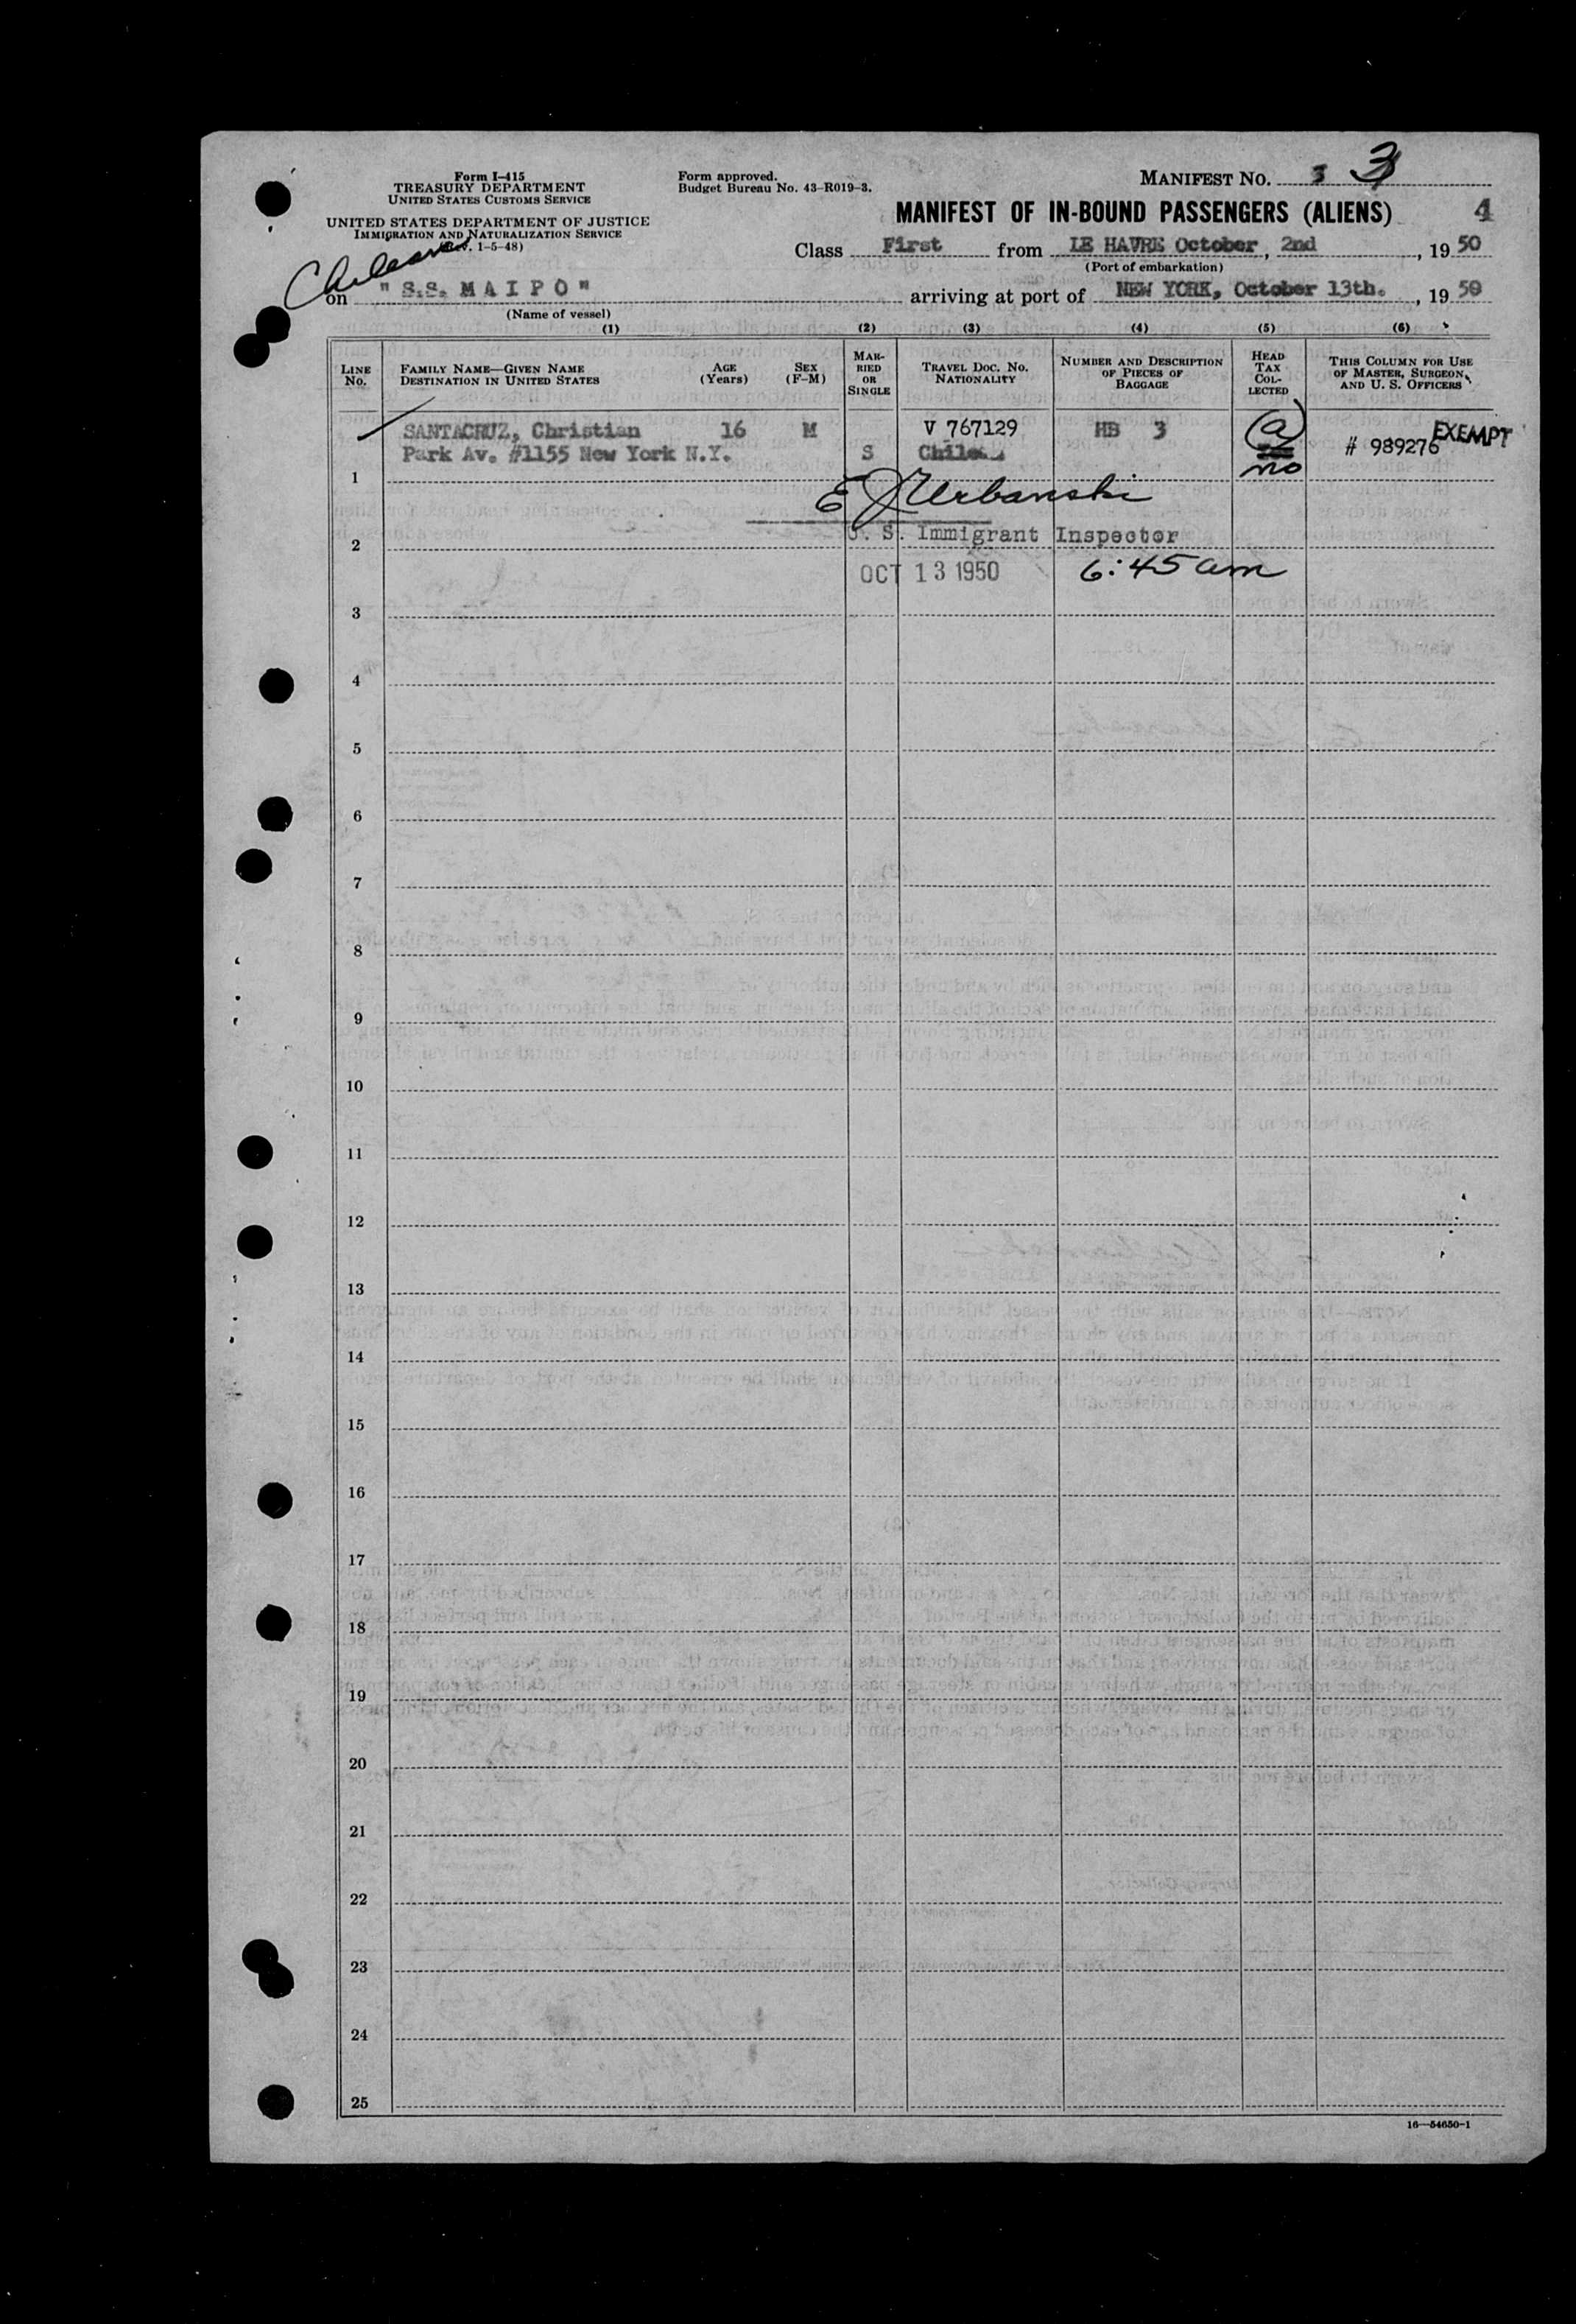 Form I-415
TREASURY DEPARTMENT
UNITED STATES CUSTOMS SERVICE
UNITED STATES DEPARTMENT OF JUSTICE
IMMIGRATION AND NATURALIZATION SERVICE
(Rev. 1-5-48)
Form approved.
Budget Bureau No. 43-R019-3.
MANIFEST NO. 3 3
MANIFEST OF IN-BOUND PASSENGERS (ALIENS) 4
Class First from LE HAVRE October, 2nd, 1950
(Port of embarkation)
Chilean
on " S.S. M A I P O " arriving at port of NEW YORK, October 13th., 1950
(Name of vessel)
(1) (2) (3) (4) (5) (6)
LINE No.
FAMILY NAME—GIVEN NAME
DESTINATION IN UNITED STATES
AGE (Years)
SEX (F-M)
MARRIED OR SINGLE
TRAVEL DOC. NO. NATIONALITY
NUMBER AND DESCRIPTION OF PIECES OF BAGGAGE
HEAD TAX COLLECTED
THIS COLUMN FOR USE OF MASTER, SURGEON, AND U. S. OFFICERS
SANTACRUZ, Christian 16 M V 767129 HB 3 # 989276 EXEMPT
Park Av. #1155 New York N.Y. S no
1
E J Urbanski
2 U. S. Immigrant Inspector
OCT 13 1950 6:45 am
3
4
5
6
7
8
9
10
11
12
13
14
15
16
17
18
19
20
21
22
23
24
25
16—54650-1